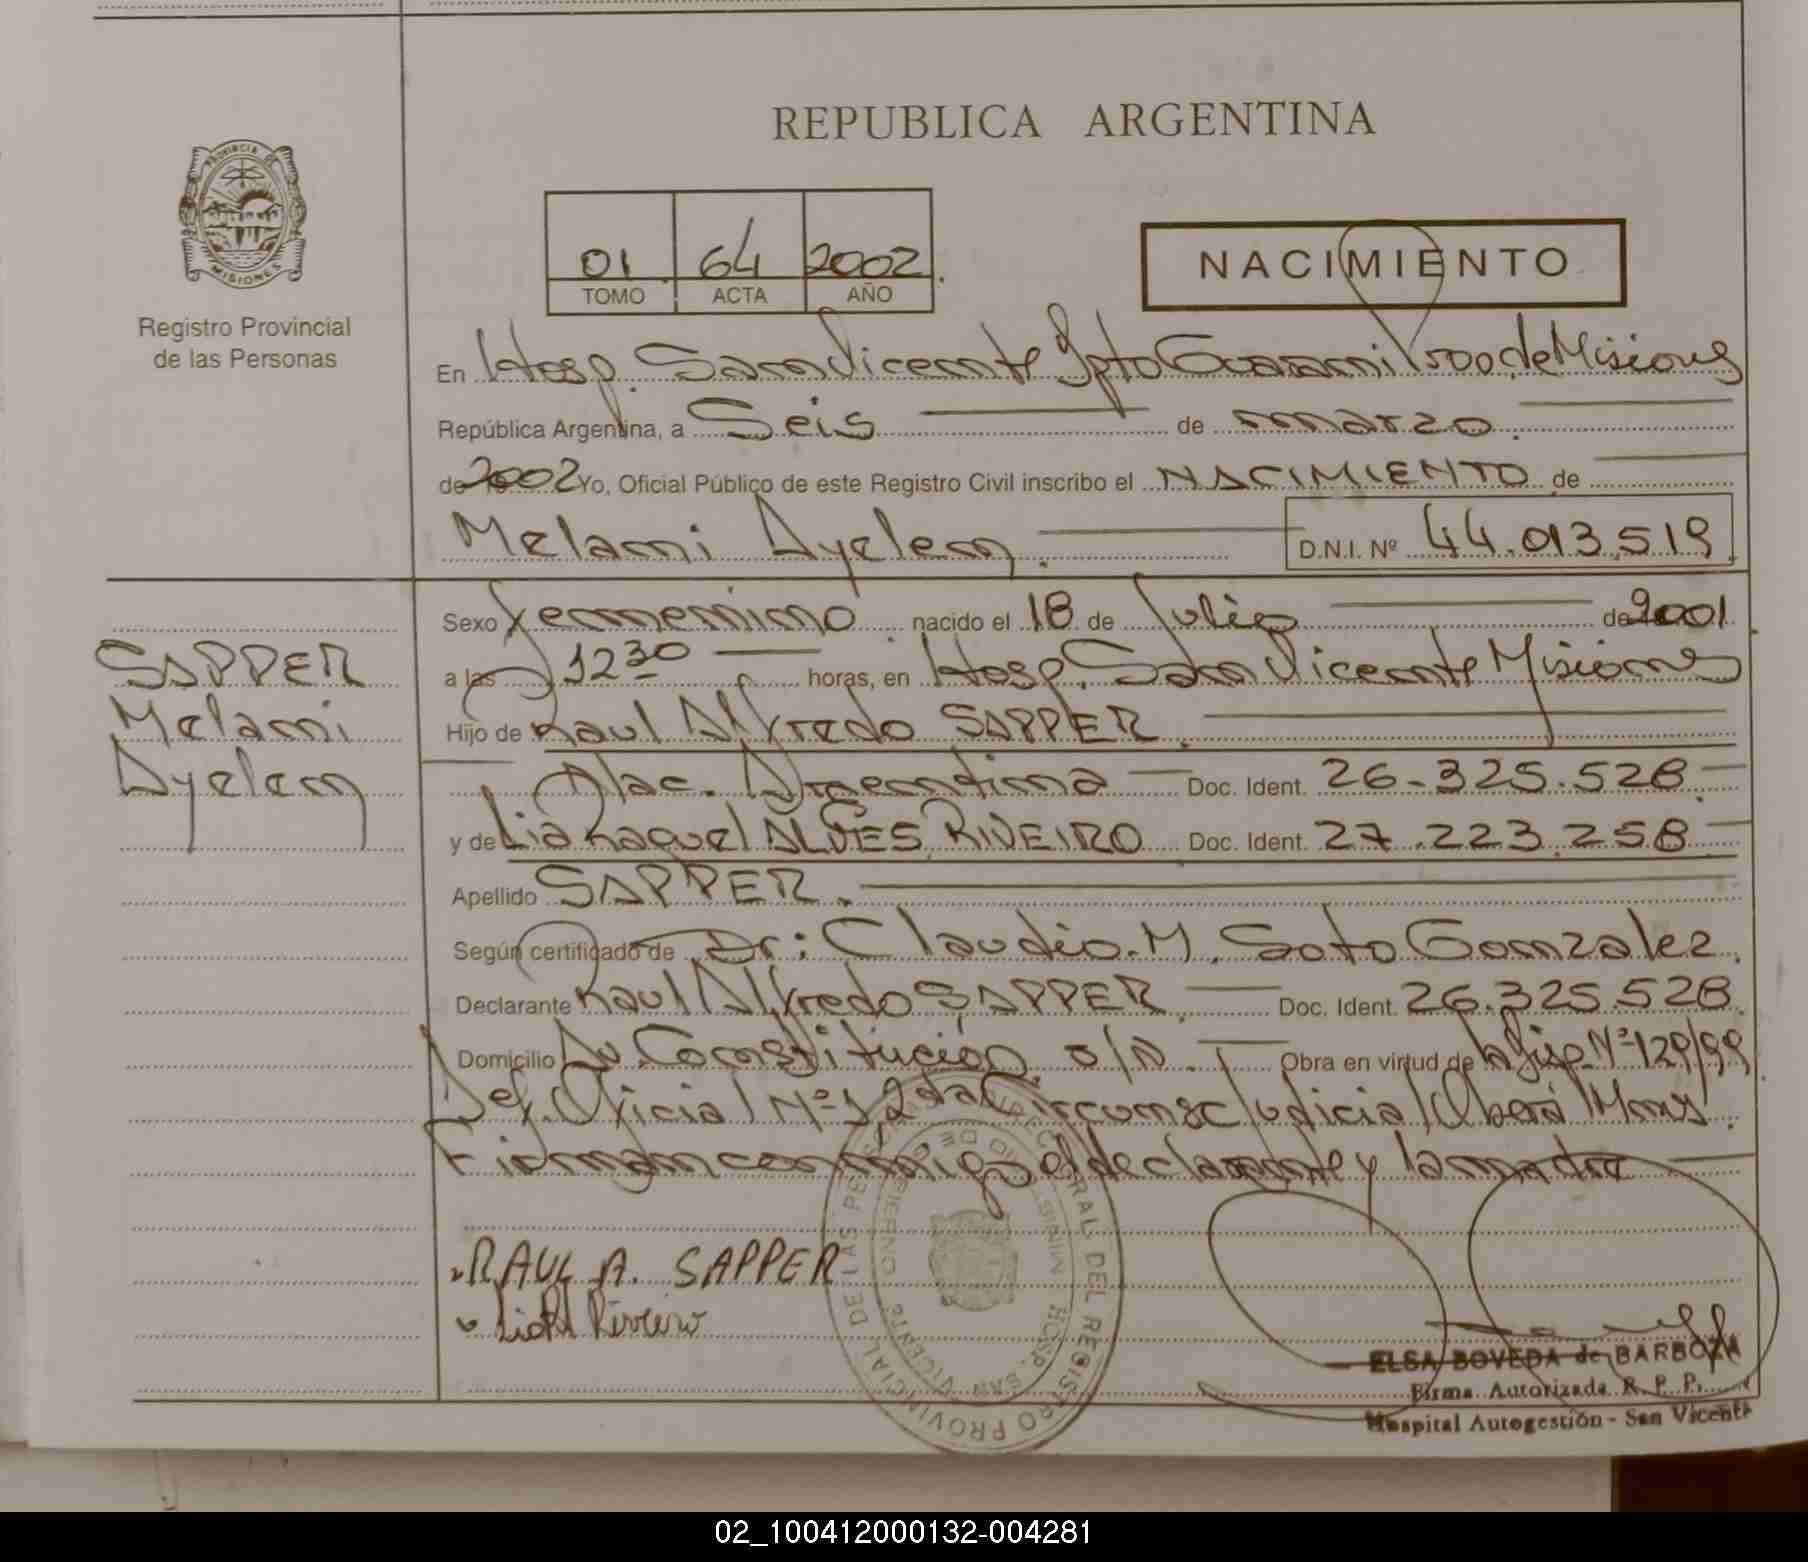 REPUBLICA ARGENTINA
PROVINCIA DE
MISIONES
Registro Provincial
de las Personas
01 64 2002
TOMO ACTA AÑO
NACIMIENTO
En Hosp. San Vicente Dpto Guarani Prov. de Misiones
República Argentina, a Seis de marzo
de 2002 Yo, Oficial Público de este Registro Civil inscribo el NACIMIENTO de
Melani Ayelen D.N.I. Nº 44.013.519
SAPPER
Melani
Ayelen
Sexo femenino nacido el 18 de Julio de 2001
a las 12 30 horas, en Hosp. San Vicente Misiones
Hijo de Raul Alfredo SAPPER
Nac. Argentina Doc. Ident. 26.325.528
y de Lia Raquel ALVES RIVEIRO Doc. Ident. 27.223.258
Apellido SAPPER.
Según certificado de Dr: Claudio. M. Soto Gonzalez.
Declarante Raul Alfredo SAPPER Doc. Ident. 26.325.528
Domicilio Av. Constitución s/n. Obra en virtud de la Disp. Nº 129/99
Def. Oficial Nº 1, 2da Circunsc Judicial Oberá Mnes.
Firman conmigo el declarante y la madre
RAUL A. SAPPER
Lia R Riveiro
DIRECCION GENERAL DEL REGISTRO PROVINCIAL DE LAS PERSONAS
MINISTERIO DE GOBIERNO
HOSP. SAN VICENTE
ELSA BOVEDA de BARBOZA
Firma Autorizada R. P. P.
Hospital Autogestión - San Vicente
02_100412000132-004281